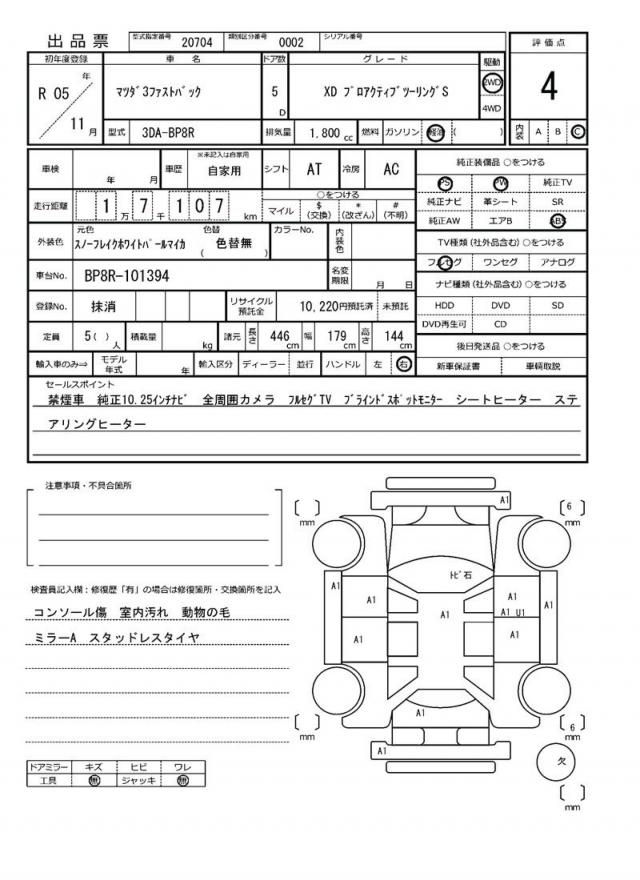 出品票
型式指定番号 20704 類別区分番号 0002 シリアル番号
評価点
4
内装 A B C
初年度登録 車名 ドア数 グレード 駆動
R 05 年 11 月
マツダ3ファストバック 5 D XD プロアクティブツーリングS 2WD 4WD
型式 3DA-BP8R 排気量 1.800 cc 燃料 ガソリン 軽油 ( )
車検 年 月 車歴 ※未記入は自家用 自家用 シフト AT 冷房 AC
走行距離 1 万 7 千 1 0 7 km
○をつける
マイル $(交換) *(改ざん) #(不明)
外装色 元色 スノーフレイクホワイトパールマイカ 色替 ( 色替無 ) カラーNo. 内装色
車台No. BP8R-101394 名変期限 月 日
登録No. 抹消 リサイクル預託金 10,220円預託済 未預託
定員 5( )人 積載量 kg 諸元 長さ 446 cm 幅 179 cm 高さ 144 cm
輸入車のみ⇒ モデル年式 年 輸入区分 ディーラー 並行 ハンドル 左 右
純正装備品 ○をつける
PS PW 純正TV
純正ナビ 革シート SR
純正AW エアB ABS
TV種類(社外品含む) ○をつける
フルセグ ワンセグ アナログ
ナビ種類(社外品含む) ○をつける
HDD DVD SD
DVD再生可 CD
後日発送品 ○をつける
新車保証書 車輌取説
セールスポイント
禁煙車 純正10.25インチナビ 全周囲カメラ フルセグTV ブラインドスポットモニター シートヒーター ステ
アリングヒーター
注意事項・不具合箇所
検査員記入欄：修復歴「有」の場合は修復箇所・交換箇所を記入
コンソール傷 室内汚れ 動物の毛
ミラーA スタッドレスタイヤ
ドアミラー キズ ヒビ ワレ
工具 無 ジャッキ 無
A1
[ ] mm
[ 6 ] mm
トビ石
A1 A1 A1 A1 A1
A1 U1
A1 A1
A1
[ ] mm
[ 6 ] mm
A1
欠
[ ] mm